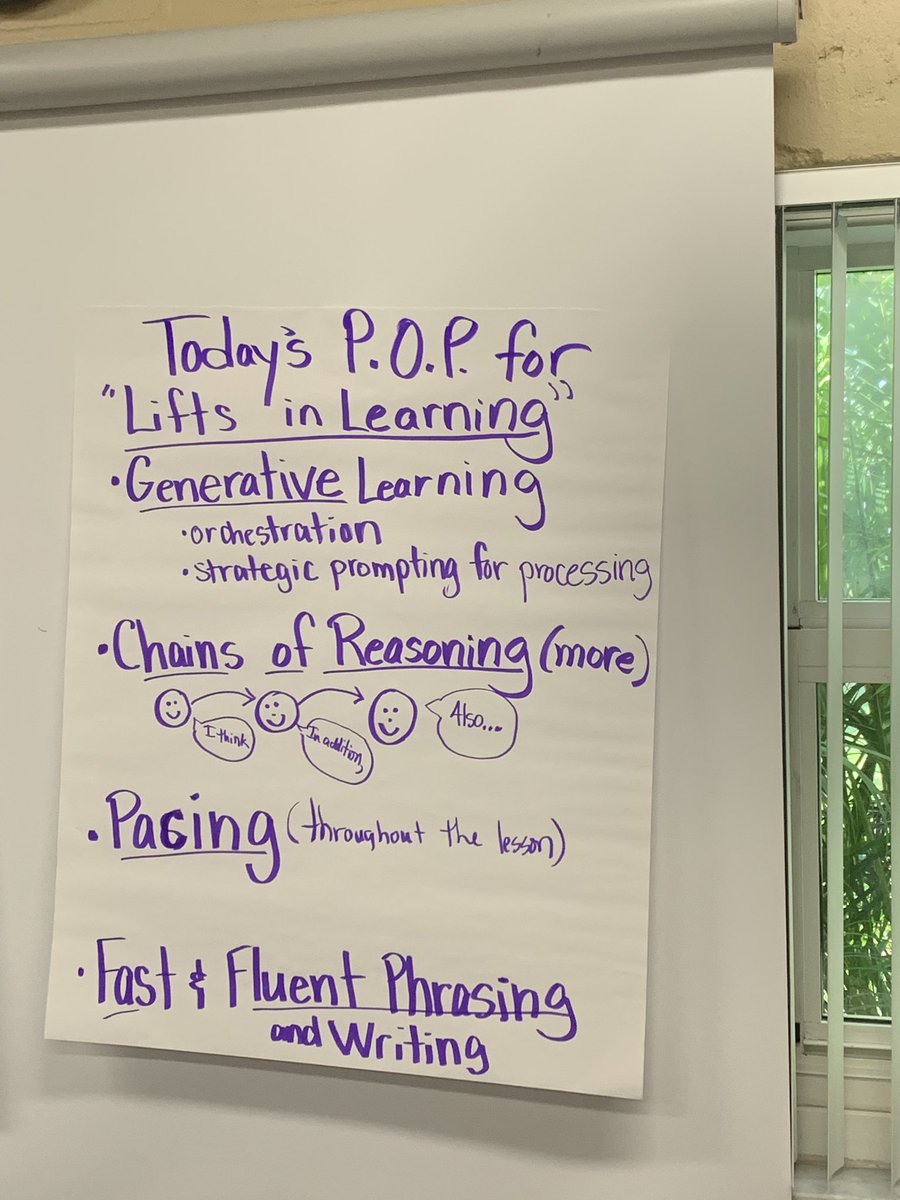 Today's P.O.P. for
"Lifts in Learning"
• Generative Learning
• orchestration
• strategic prompting for processing
• Chains of Reasoning (more)
I think
In addition,
Also...
• Pacing (throughout the lesson)
• Fast & Fluent Phrasing
and Writing